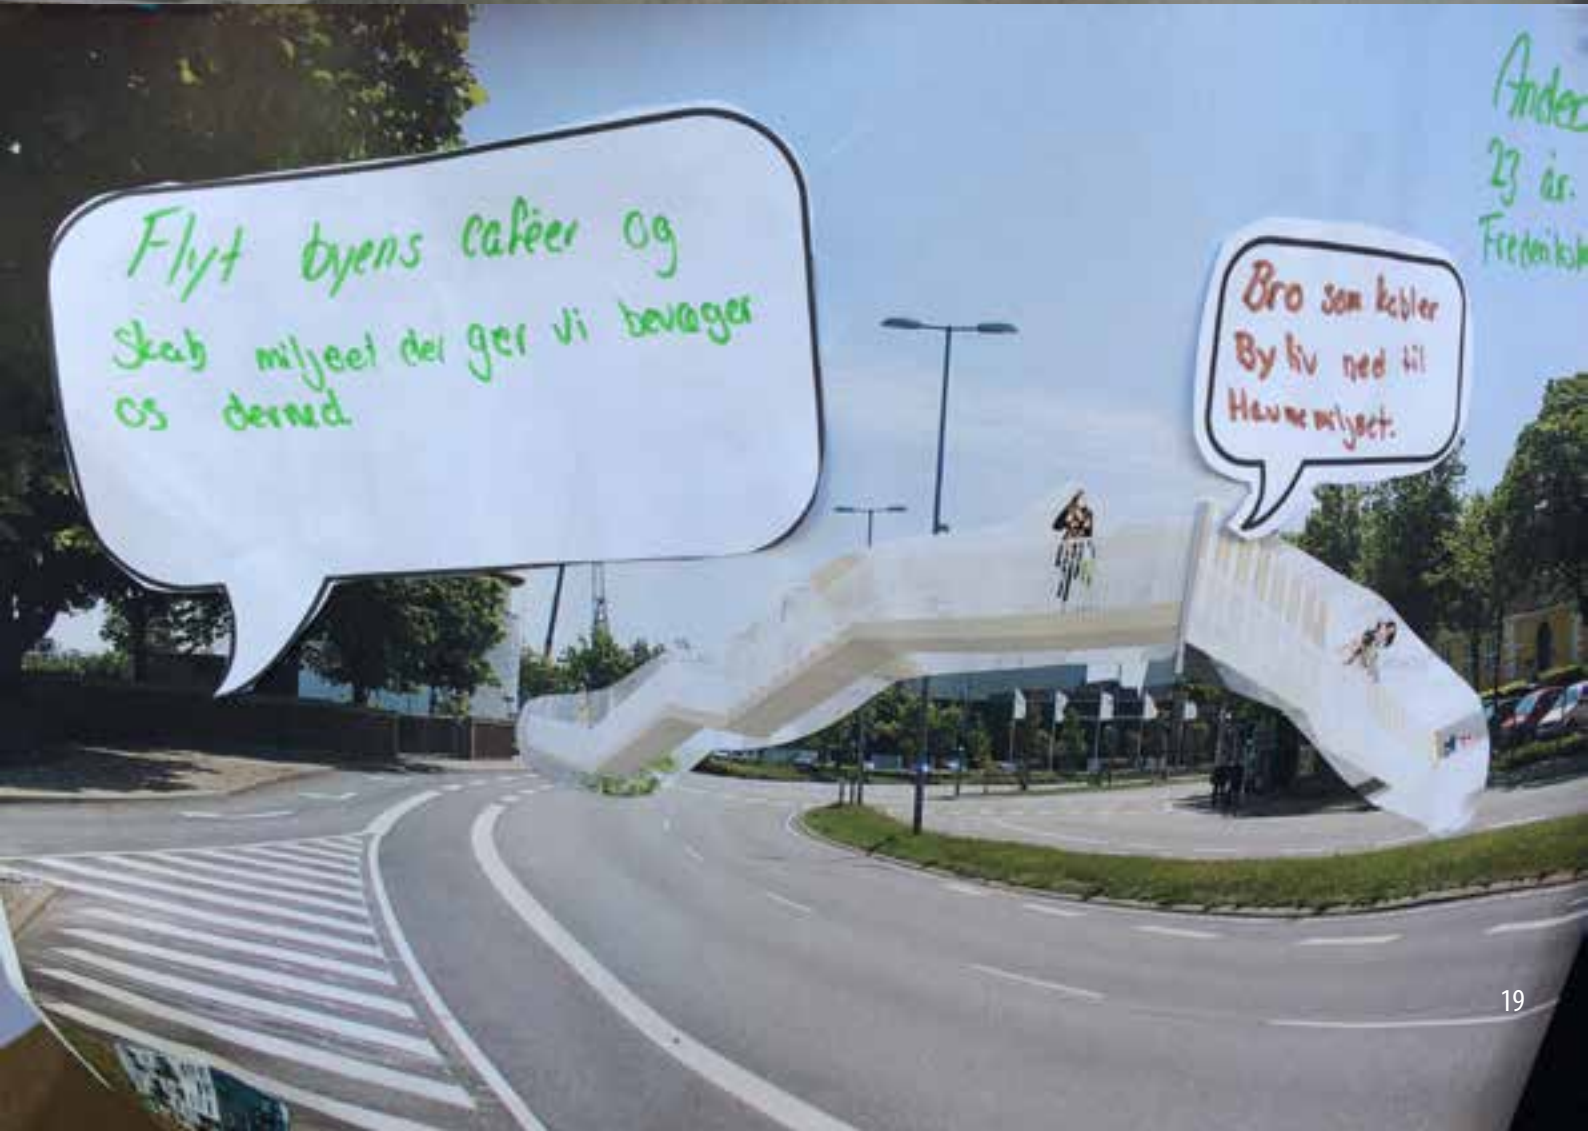 Flyt byens caféer og
Skab miljøet der gør vi bevæger
os derned.
Bro som kobler
By liv ned til
Havnemiljøet.
Ander
23 år.
Frederiksh
19